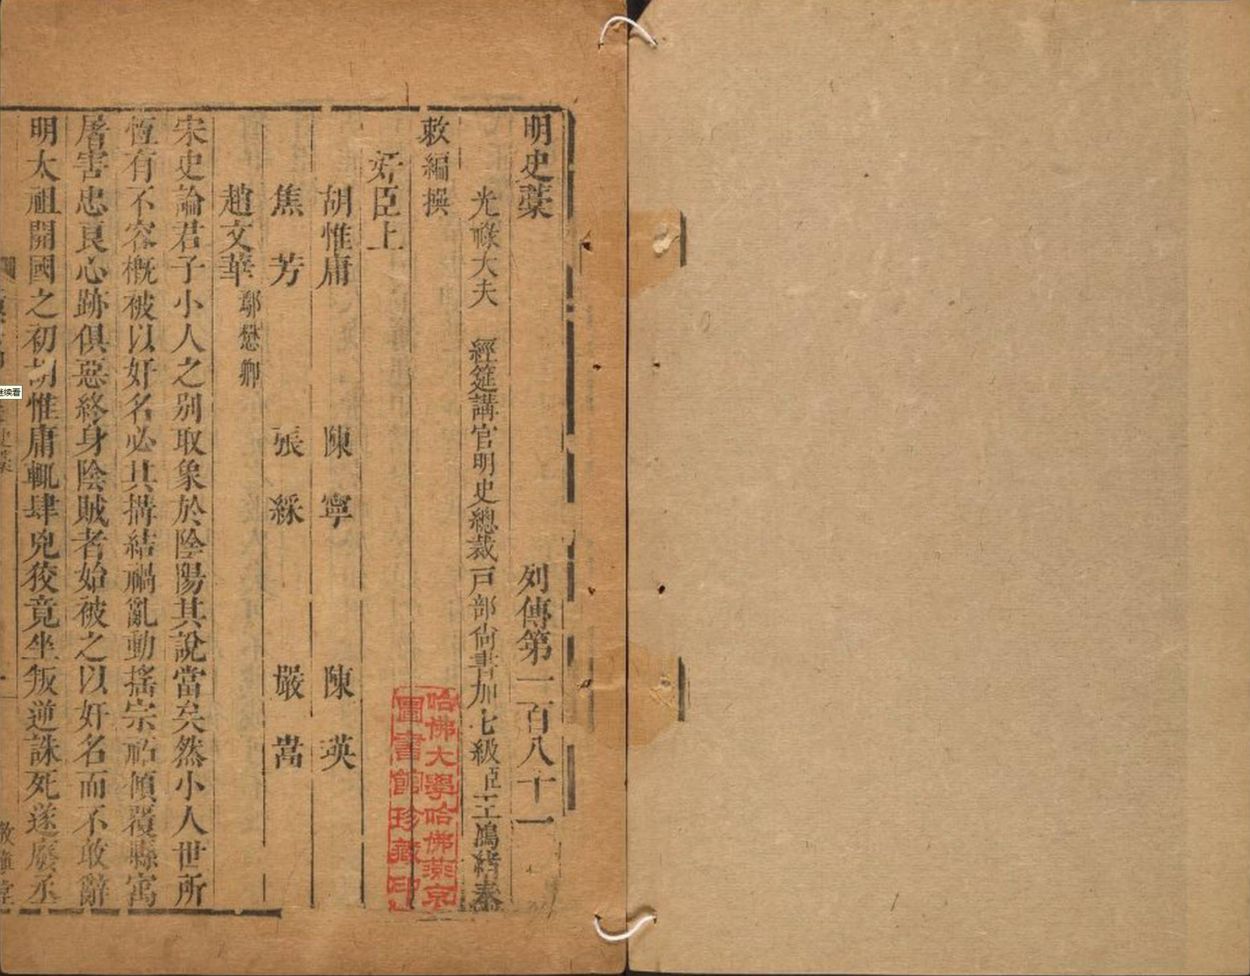 明史藁　列傳第一百八十一
光祿大夫　經筵講官明史總裁戶部尙書加七級臣王鴻緒奉
敕編撰
奸臣上
胡惟庸　陳寧　陳瑛
焦芳　張綵　嚴嵩
趙文華 鄢懋卿
宋史論君子小人之别取象於陰陽其說當矣然小人世所
恆有不容概被以奸名必其搆結禍亂動搖宗祏傾覆縣寓
屠害忠良心跡俱惡終身陰賊者始被之以奸名而不敢辭
明太祖開國之初胡惟庸輒肆兇狡竟坐叛逆誅死遂廢丞
敬愼堂
哈佛大學哈佛燕京
圖書館珍藏印
继续看